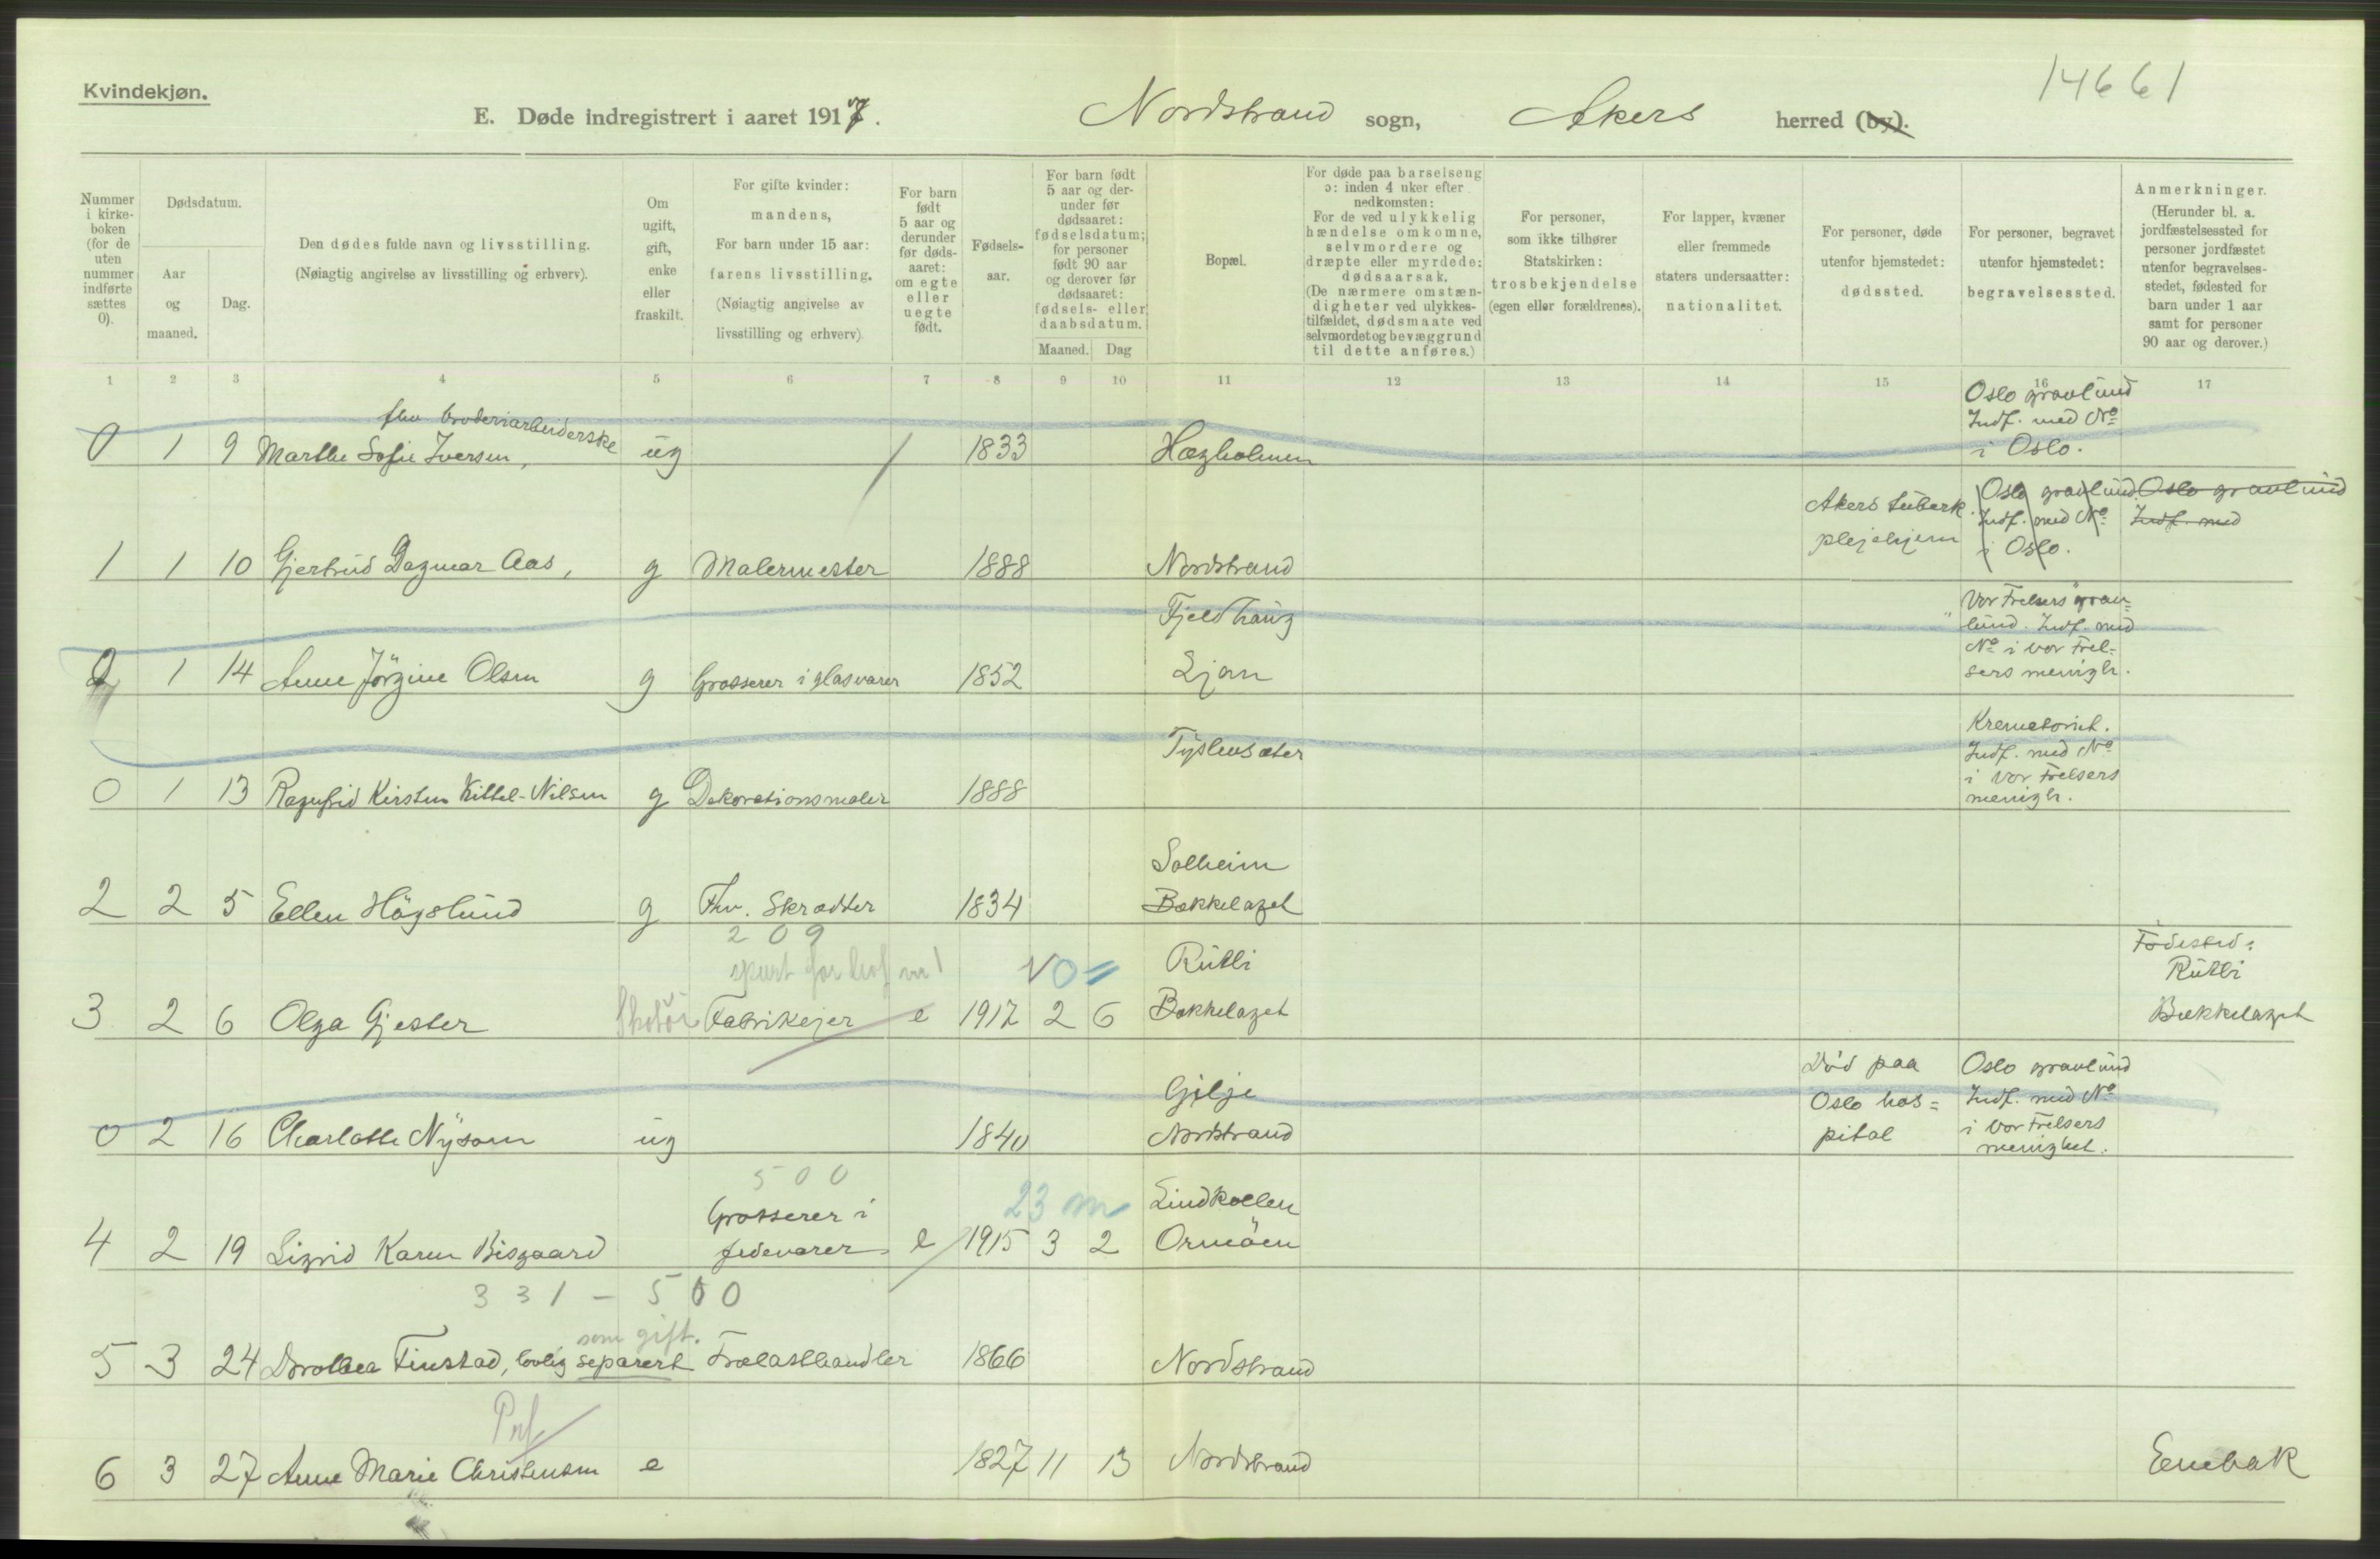 14661
Kvindekjøn.
E. Døde indregistrert i aaret 1917. Nordstrand sogn, Akers herred (by).
Nummer i kirke-boken (for de uten nummer indførte sættes 0).
Dødsdatum.
Aar og maaned.
Dag.
Den dødes fulde navn og livsstilling.
(Nøiagtig angivelse av livsstilling og erhverv).
Om ugift, gift, enke eller fraskilt.
For gifte kvinder: mandens,
For barn under 15 aar: farens livsstilling.
(Nøiagtig angivelse av livsstilling og erhverv)
For barn født 5 aar og derunder før døds-aaret: om egte eller uegte født.
Fødsels-aar.
For barn født 5 aar og der-under før dødsaaret: fødselsdatum; for personer født 90 aar og derover før dødsaaret: fødsels- eller daabsdatum.
Maaned. Dag
Bopæl.
For døde paa barselseng ɔ: inden 4 uker efter nedkomsten:
For de ved ulykkelig hændelse omkomne, selvmordere og dræpte eller myrdede: dødsaarsak.
(De nærmere omstæn-digheter ved ulykkes-tilfældet, dødsmaate ved selvmordet og bevæggrund til dette anføres.)
For personer, som ikke tilhører Statskirken: trosbekjendelse (egen eller forældrenes).
For lapper, kvæner eller fremmede staters undersaatter: nationalitet.
For personer, døde utenfor hjemstedet: dødssted.
For personer, begravet utenfor hjemstedet: begravelsessted.
Anmerkninger.
(Herunder bl. a. jordfæstelsessted for personer jordfæstet utenfor begravelses-stedet, fødested for barn under 1 aar samt for personer 90 aar og derover.)
1 2 3 4 5 6 7 8 9 10 11 12 13 14 15 16 17
0 1 9 Marthe Sofie Iversen, fhv broderiarbeiderske ug 1833 Hægholmen Oslo gravlund Indf. med No i Oslo.
1 1 10 Gjertrud Dagmar Aas, g Malermester 1888 Nordstrand Akers tuberk. plejehjem Oslo gravlund. Indf. med No i Oslo. Oslo gravlund Indf. med
0 1 14 Anne Jörgine Olsen g Grosserer i glasvarer 1852 Fjeldhaug Ljan " Vor Frelsers grav=lund. Indf. med No i vor Frel=sers menigh.
0 1 13 Ragnfrid Kirsten Kittel-Nilsen g Dekorationsmaler 1888 Tyslevsæter Krematoriet. Indf. med No i Vor Frelsers menigh.
2 2 5 Ellen Högslund g Fhv. Skrædder 1834 Solheim Bækkelaget
209
3 2 6 Olga Gjester Fabrikejer e 1917 2 6 Rutli Bækkelaget Födested: Rutli Bækkelaget
0 2 16 Charlotte Nysom ug 1840 Gilje Nordstrand Död paa Oslo hos=pital Oslo gravlund Indf. med No i Vor Frelsers menighet.
500
4 2 19 Sigrid Karen Bisgaard Grosserer i fedevarer e 1915 3 2 23 m Lindkollen Ormöen
331 - 500
5 3 24 Dorothea Finstad, lovlig separert som gift. Trælasthandler 1866 Nordstrand
6 3 27 Anne Marie Christensen e 1827 11 13 Nordstrand Enebak